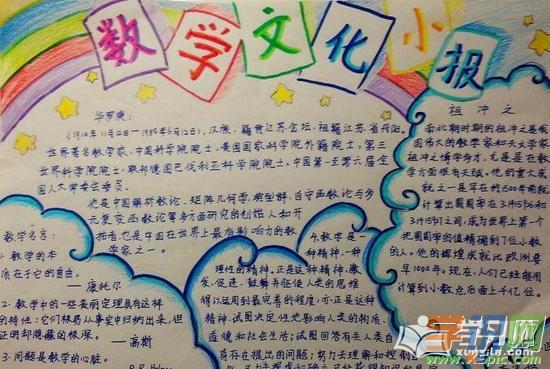 数学文化小报
华罗庚:
(1910年11月12日-1985年6月12日),汉族,籍贯江苏金坛,祖籍江苏省丹阳。
世界著名数学家,中国科学院院士,美国国家科学院外籍院士,第三
世界科学院院士,联邦德国巴伐利亚科学院院士,中国第一至第六届全
国人大常委会委员。
他是中国解析数论、矩阵几何学、典型群、自守函数论与多
元复变函数论等多方面研究的创始人和开
拓者,也是中国在世界上最有影响力的数
学家之一。
祖冲之
南北朝时期的祖冲之是我
国伟大的数学家和天文学家
祖冲之博学多才,尤其是在数
学方面很有天赋,他的重大成
就之一是早在约1500年前就
计算出圆周率在3.1415926和
3.1415927之间,成为世界上第一个
把圆周率的值精确到7位小数
的人。他的辉煌成就比欧洲要
早1000年。现在,人们已经能用
计算到小数点后面上千亿位。
数学名言:
1.数学的本
质在于它的自由。
——康托尔
2.数学中的一些美丽定理具有这样
的特性:它们极易从事实中归纳出来,但
证明却隐藏的极深。
——高斯
3.问题是数学的心脏。
4.数学是一
种精神,一种
理性的精神。正是这种精神,激
发、促进、鼓舞并驱使人类的思维
得以运用到最完善的程度,亦正是这种
精神,试图决定性地影响人类的物质、
道德和社会生活;试图回答有关人类自
身存在提出的问题;努力去理解和控制
学习网
www.xuexila.com
www.x5pic.com